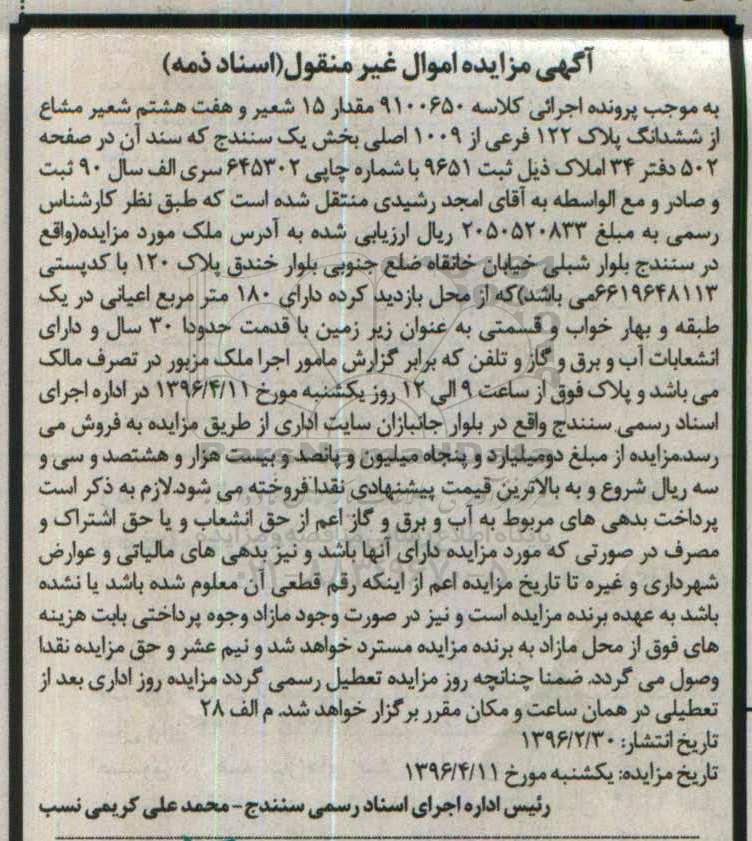 آگهی مزایده اموال غیر منقول(اسناد ذمه)
به موجب پرونده اجرائی کلاسه ۹۱۰۰۶۵۰ مقدار ۱۵ شعیر و هفت هشتم شعیر مشاع
از ششدانگ پلاک ۱۲۲ فرعی از ۱۰۰۹ اصلی بخش یک سنندج که سند آن در صفحه
۵۰۲ دفتر ۳۴ املاک ذیل ثبت ۹۶۵۱ با شماره چاپی ۶۴۵۳۰۲ سری الف سال ۹۰ ثبت
و صادر و مع الواسطه به آقای امجد رشیدی منتقل شده است که طبق نظر کارشناس
رسمی به مبلغ ۲۰۵۰۵۲۰۸۳۳ ریال ارزیابی شده به آدرس ملک مورد مزایده(واقع
در سنندج بلوار شبلی خیابان خانقاه ضلع جنوبی بلوار خندق پلاک ۱۲۰ با کدپستی
۶۶۱۹۶۴۸۱۱۳می باشد)که از محل بازدید کرده دارای ۱۸۰ متر مربع اعیانی در یک
طبقه و بهار خواب و قسمتی به عنوان زیر زمین با قدمت حدودا ۳۰ سال و دارای
انشعابات آب و برق و گاز و تلفن که برابر گزارش مامور اجرا ملک مزبور در تصرف مالک
می باشد و پلاک فوق از ساعت ۹ الی ۱۲ روز یکشنبه مورخ ۱۳۹۶/۴/۱۱ در اداره اجرای
اسناد رسمی سنندج واقع در بلوار جانبازان سایت اداری از طریق مزایده به فروش می
رسد.مزایده از مبلغ دومیلیارد و پنجاه میلیون و پانصد و بیست هزار و هشتصد و سی و
سه ریال شروع و به بالاترین قیمت پیشنهادی نقدا فروخته می شود.لازم به ذکر است
پرداخت بدهی های مربوط به آب و برق و گاز اعم از حق انشعاب و یا حق اشتراک و
مصرف در صورتی که مورد مزایده دارای آنها باشد و نیز بدهی های مالیاتی و عوارض
شهرداری و غیره تا تاریخ مزایده اعم از اینکه رقم قطعی آن معلوم شده باشد یا نشده
باشد به عهده برنده مزایده است و نیز در صورت وجود مازاد وجوه پرداختی بابت هزینه
های فوق از محل مازاد به برنده مزایده مسترد خواهد شد و نیم عشر و حق مزایده نقدا
وصول می گردد. ضمنا چنانچه روز مزایده تعطیل رسمی گردد مزایده روز اداری بعد از
تعطیلی در همان ساعت و مکان مقرر برگزار خواهد شد. م الف ۲۸
تاریخ انتشار: ۱۳۹۶/۲/۳۰
تاریخ مزایده: یکشنبه مورخ ۱۳۹۶/۴/۱۱
رئیس اداره اجرای اسناد رسمی سنندج- محمد علی کریمی نسب